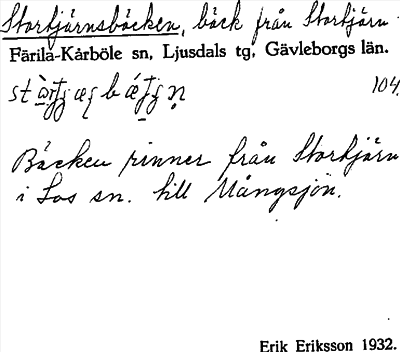 Storkjärnsbäcken, bäck från Storkjärn
Färila-Kårböle sn, Ljusdals tg, Gävleborgs län.
104.
Bäcken rinner från Storkjärn
i Los sn. till Mångsjön.
Erik Eriksson 1932.